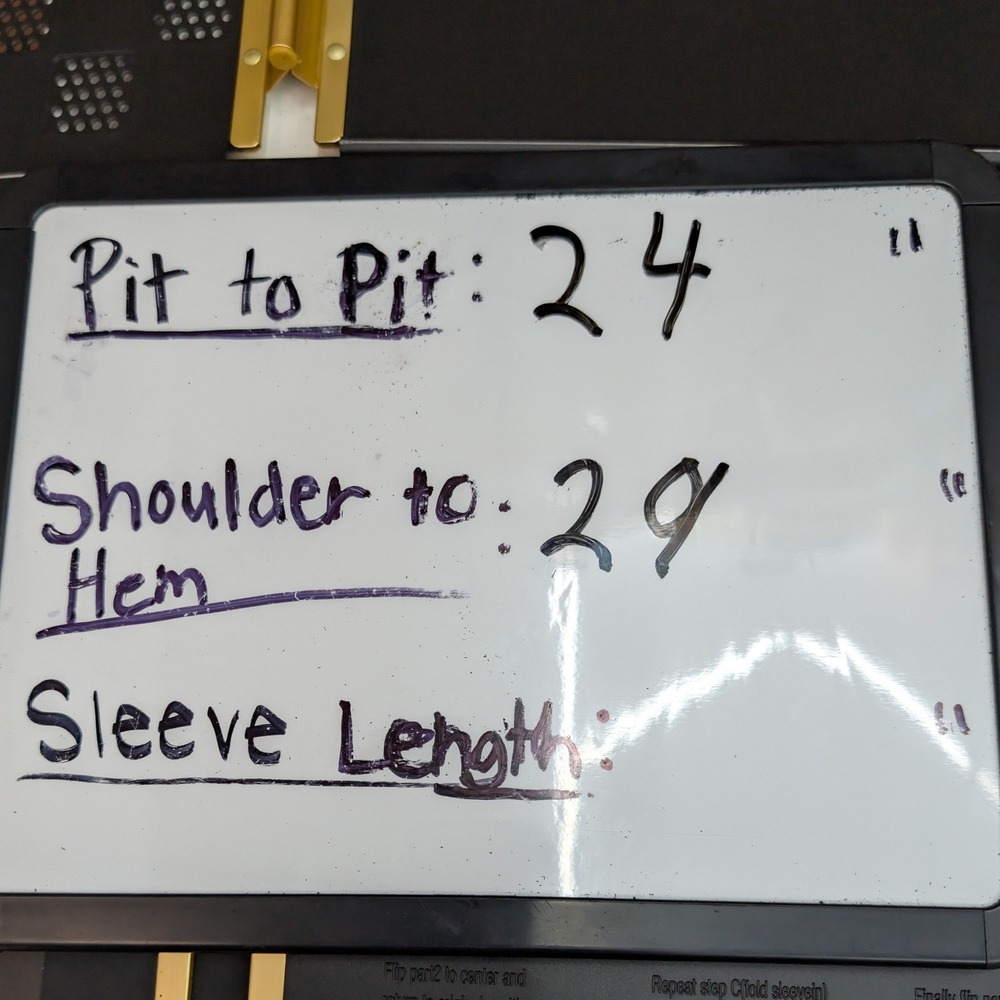 Pit to Pit: 24 "
Shoulder to: 29 "
Hem
Sleeve Length: "
Flip part2 to center and
Repeat step C(fold sleevein)